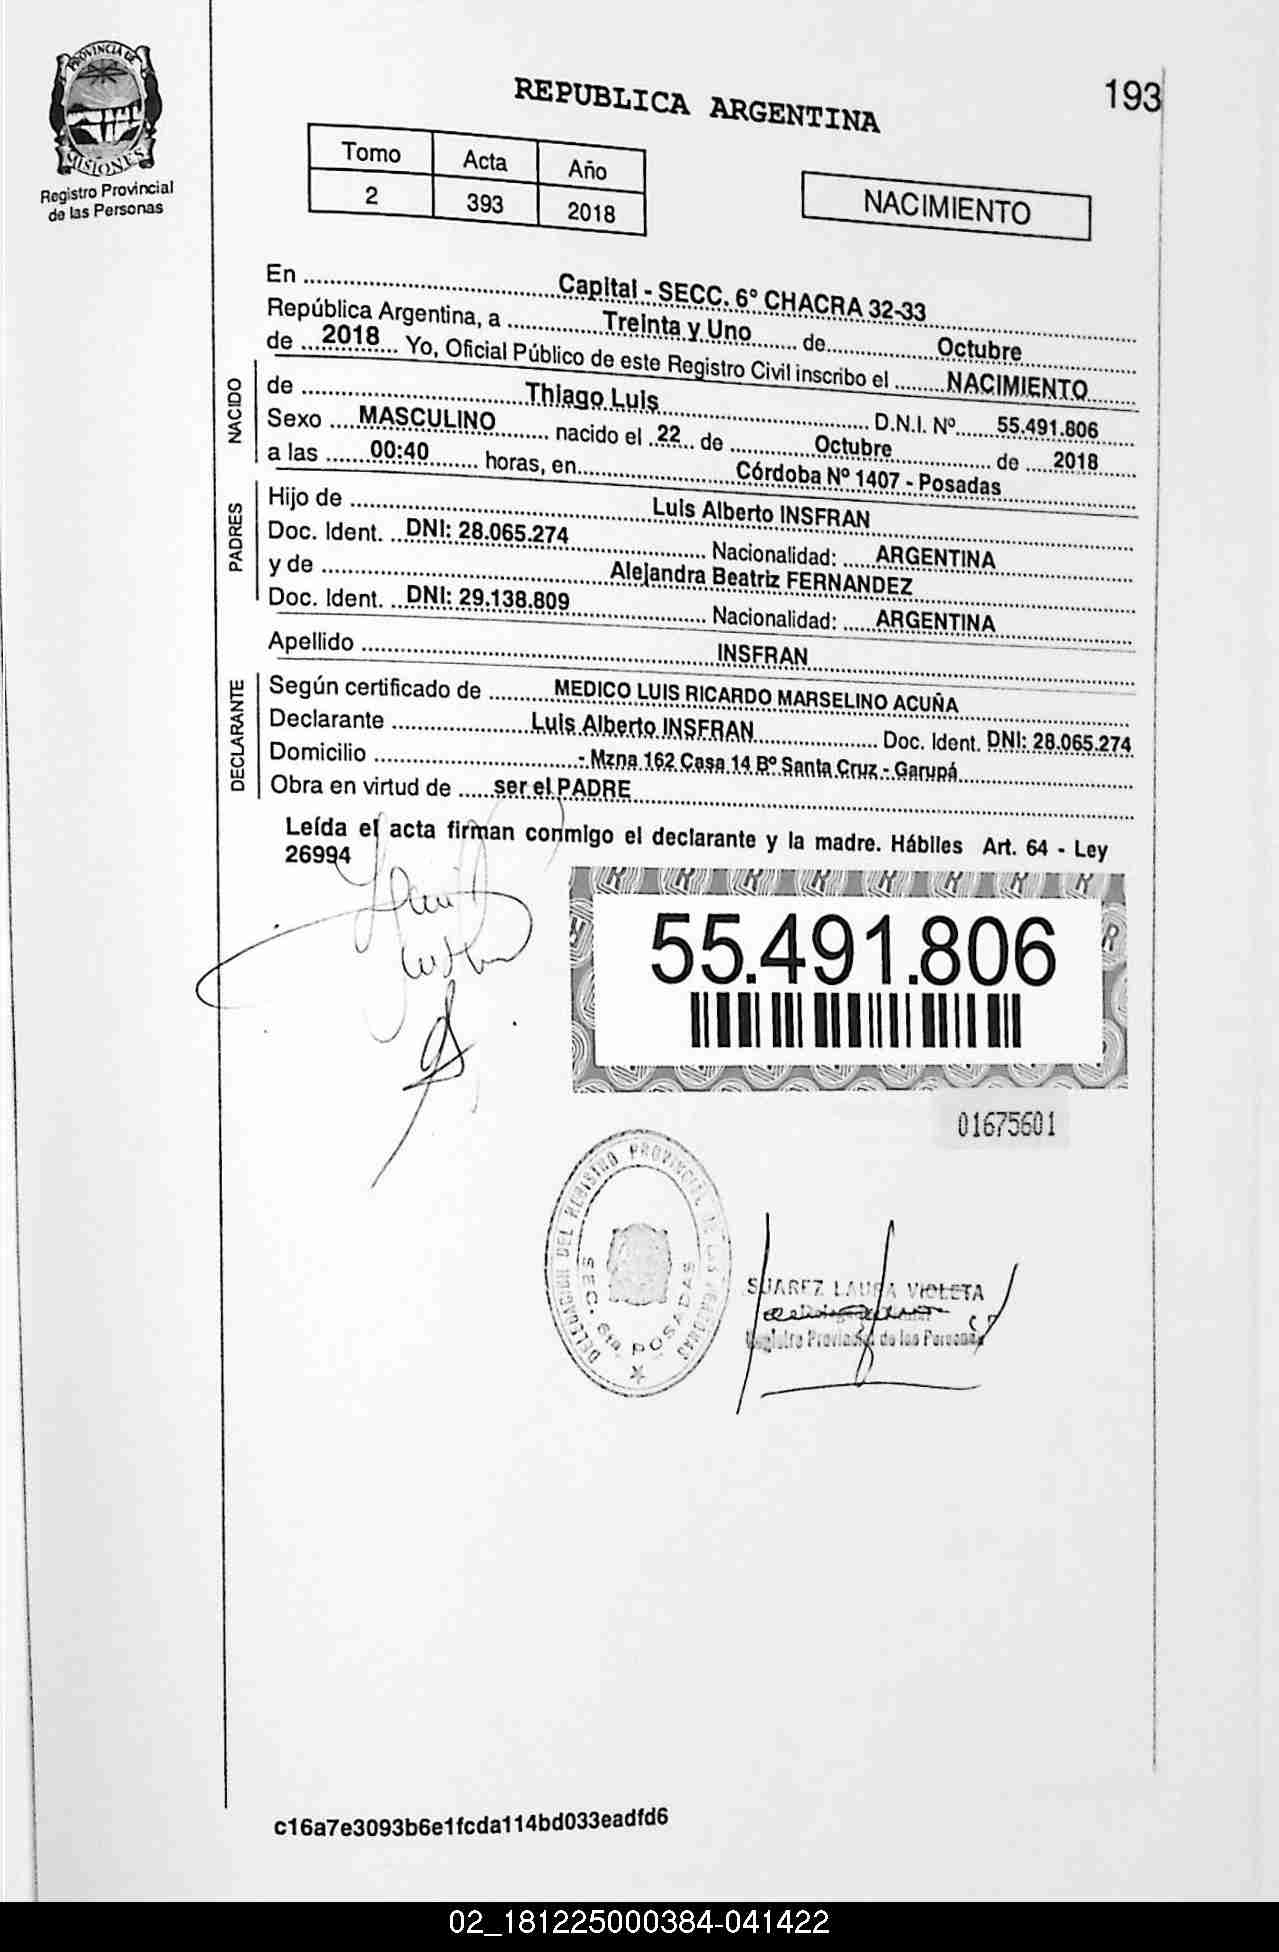 PROVINCIA DE
MISIONES
Registro Provincial
de las Personas
193
REPUBLICA ARGENTINA
Tomo Acta Año
2 393 2018
NACIMIENTO
En Capital - SECC. 6° CHACRA 32-33
República Argentina, a Treinta y Uno de Octubre
de 2018 Yo, Oficial Público de este Registro Civil inscribo el NACIMIENTO
NACIDO
de Thiago Luis D.N.I. Nº 55.491.806
Sexo MASCULINO nacido el 22 de Octubre de 2018
a las 00:40 horas, en Córdoba Nº 1407 - Posadas
PADRES
Hijo de Luis Alberto INSFRAN
Doc. Ident. DNI: 28.065.274 Nacionalidad: ARGENTINA
y de Alejandra Beatriz FERNANDEZ
Doc. Ident. DNI: 29.138.809 Nacionalidad: ARGENTINA
Apellido INSFRAN
DECLARANTE
Según certificado de MEDICO LUIS RICARDO MARSELINO ACUÑA
Declarante Luis Alberto INSFRAN Doc. Ident. DNI: 28.065.274
Domicilio - Mzna 162 Casa 14 Bº Santa Cruz - Garupá
Obra en virtud de ser el PADRE
Leída el acta firman conmigo el declarante y la madre. Hábiles Art. 64 - Ley
26994
55.491.806
01675601
DELEGACION DEL REGISTRO PROVINCIAL DE LAS PERSONAS
SEC. 6ta POSADAS
SUAREZ LAURA VIOLETA
Registro Provincial de las Personas
c16a7e3093b6e1fcda114bd033eadfd6
02_181225000384-041422